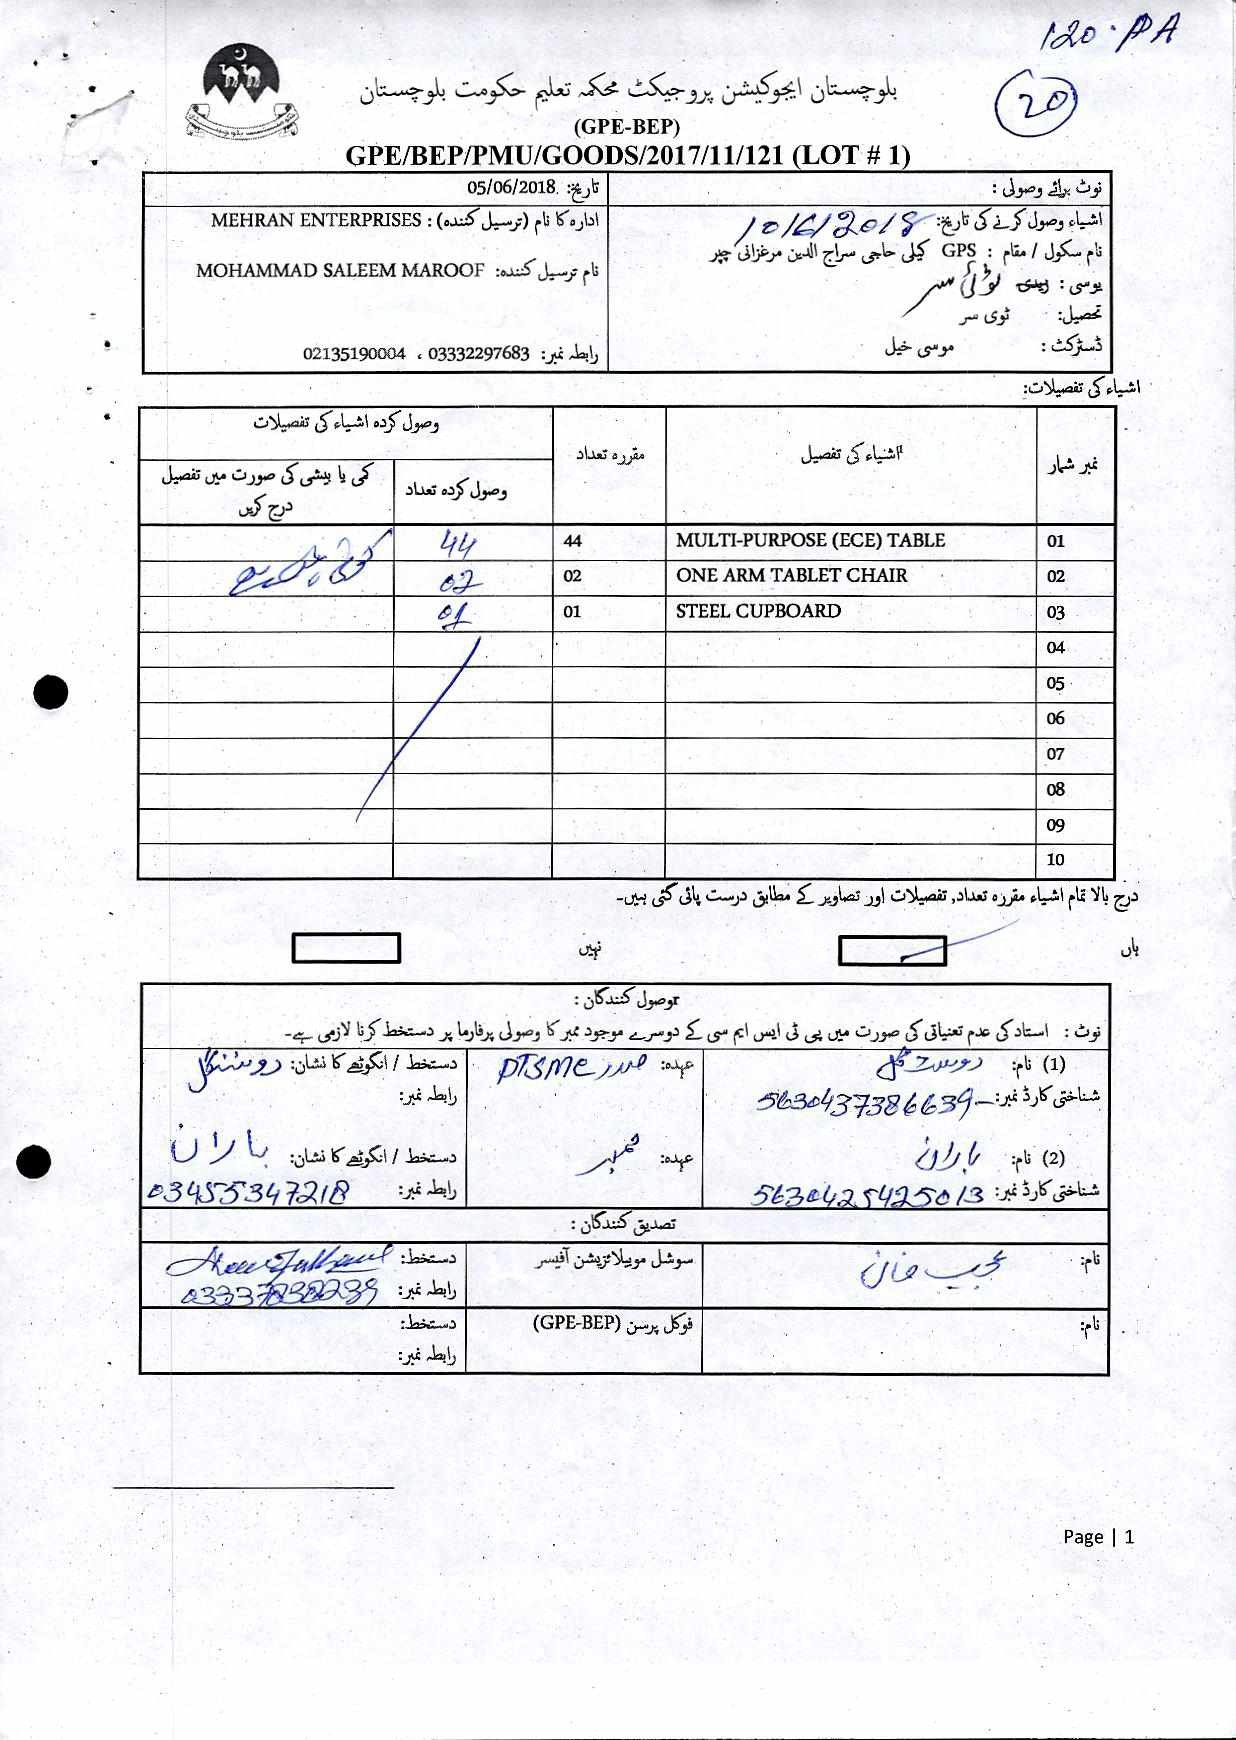 120·PA
20
بلوچستان ایجوکیشن پروجیکٹ محکمہ تعلیم حکومت بلوچستان
(GPE-BEP)
GPE/BEP/PMU/GOODS/2017/11/121 (LOT # 1)
نوٹ برائے وصولی :
تاریخ: .05/06/2018
اشیاء وصول کرنے کی تاریخ: 10/6/2018
ادارہ کا نام (ترسیل کنندہ) : MEHRAN ENTERPRISES
نام سکول / مقام : GPS کیلی حاجی سراج الدین مرغزانی چپر
نام ترسیل کنندہ: MOHAMMAD SALEEM MAROOF
یوسی :
تحصیل: ٹوی سر
ڈسٹرکٹ : موسی خیل
رابطہ نمبر: 03332297683 ، 02135190004
اشیاء کی تفصیلات:
نمبر شمار
اشیاء کی تفصیل
مقررہ تعداد
وصول کردہ اشیاء کی تفصیلات
وصول کردہ تعداد
کمی یا بیشی کی صورت میں تفصیل درج کریں
01 MULTI-PURPOSE (ECE) TABLE 44 44
02 ONE ARM TABLET CHAIR 02 02
03 STEEL CUPBOARD 01 01
04
05
06
07
08
09
10
درج بالا تمام اشیاء مقررہ تعداد, تفصیلات اور تصاویر کے مطابق درست پائی گئی ہیں۔
ہاں
نہیں
وصول کنندگان :
نوٹ : استاد کی عدم تعنیاتی کی صورت میں پی ٹی ایس ایم سی کے دوسرے موجود ممبر کا وصولی پرفارما پر دستخط کرنا لازمی ہے۔
(1) نام: دوست گل
عہدہ: صدر PTSMC
دستخط / انگوٹھے کا نشان: دوست گل
شناختی کارڈ نمبر: 5630437386639
رابطہ نمبر:
(2) نام: باران
عہدہ: ممبر
دستخط / انگوٹھے کا نشان: باران
شناختی کارڈ نمبر: 5630425425013
رابطہ نمبر: 03455347218
تصدیق کنندگان :
نام: مجیب خان
سوشل موبیلائزیشن آفیسر
دستخط:
رابطہ نمبر: 03337838239
نام:
فوکل پرسن (GPE-BEP)
دستخط:
رابطہ نمبر:
Page | 1